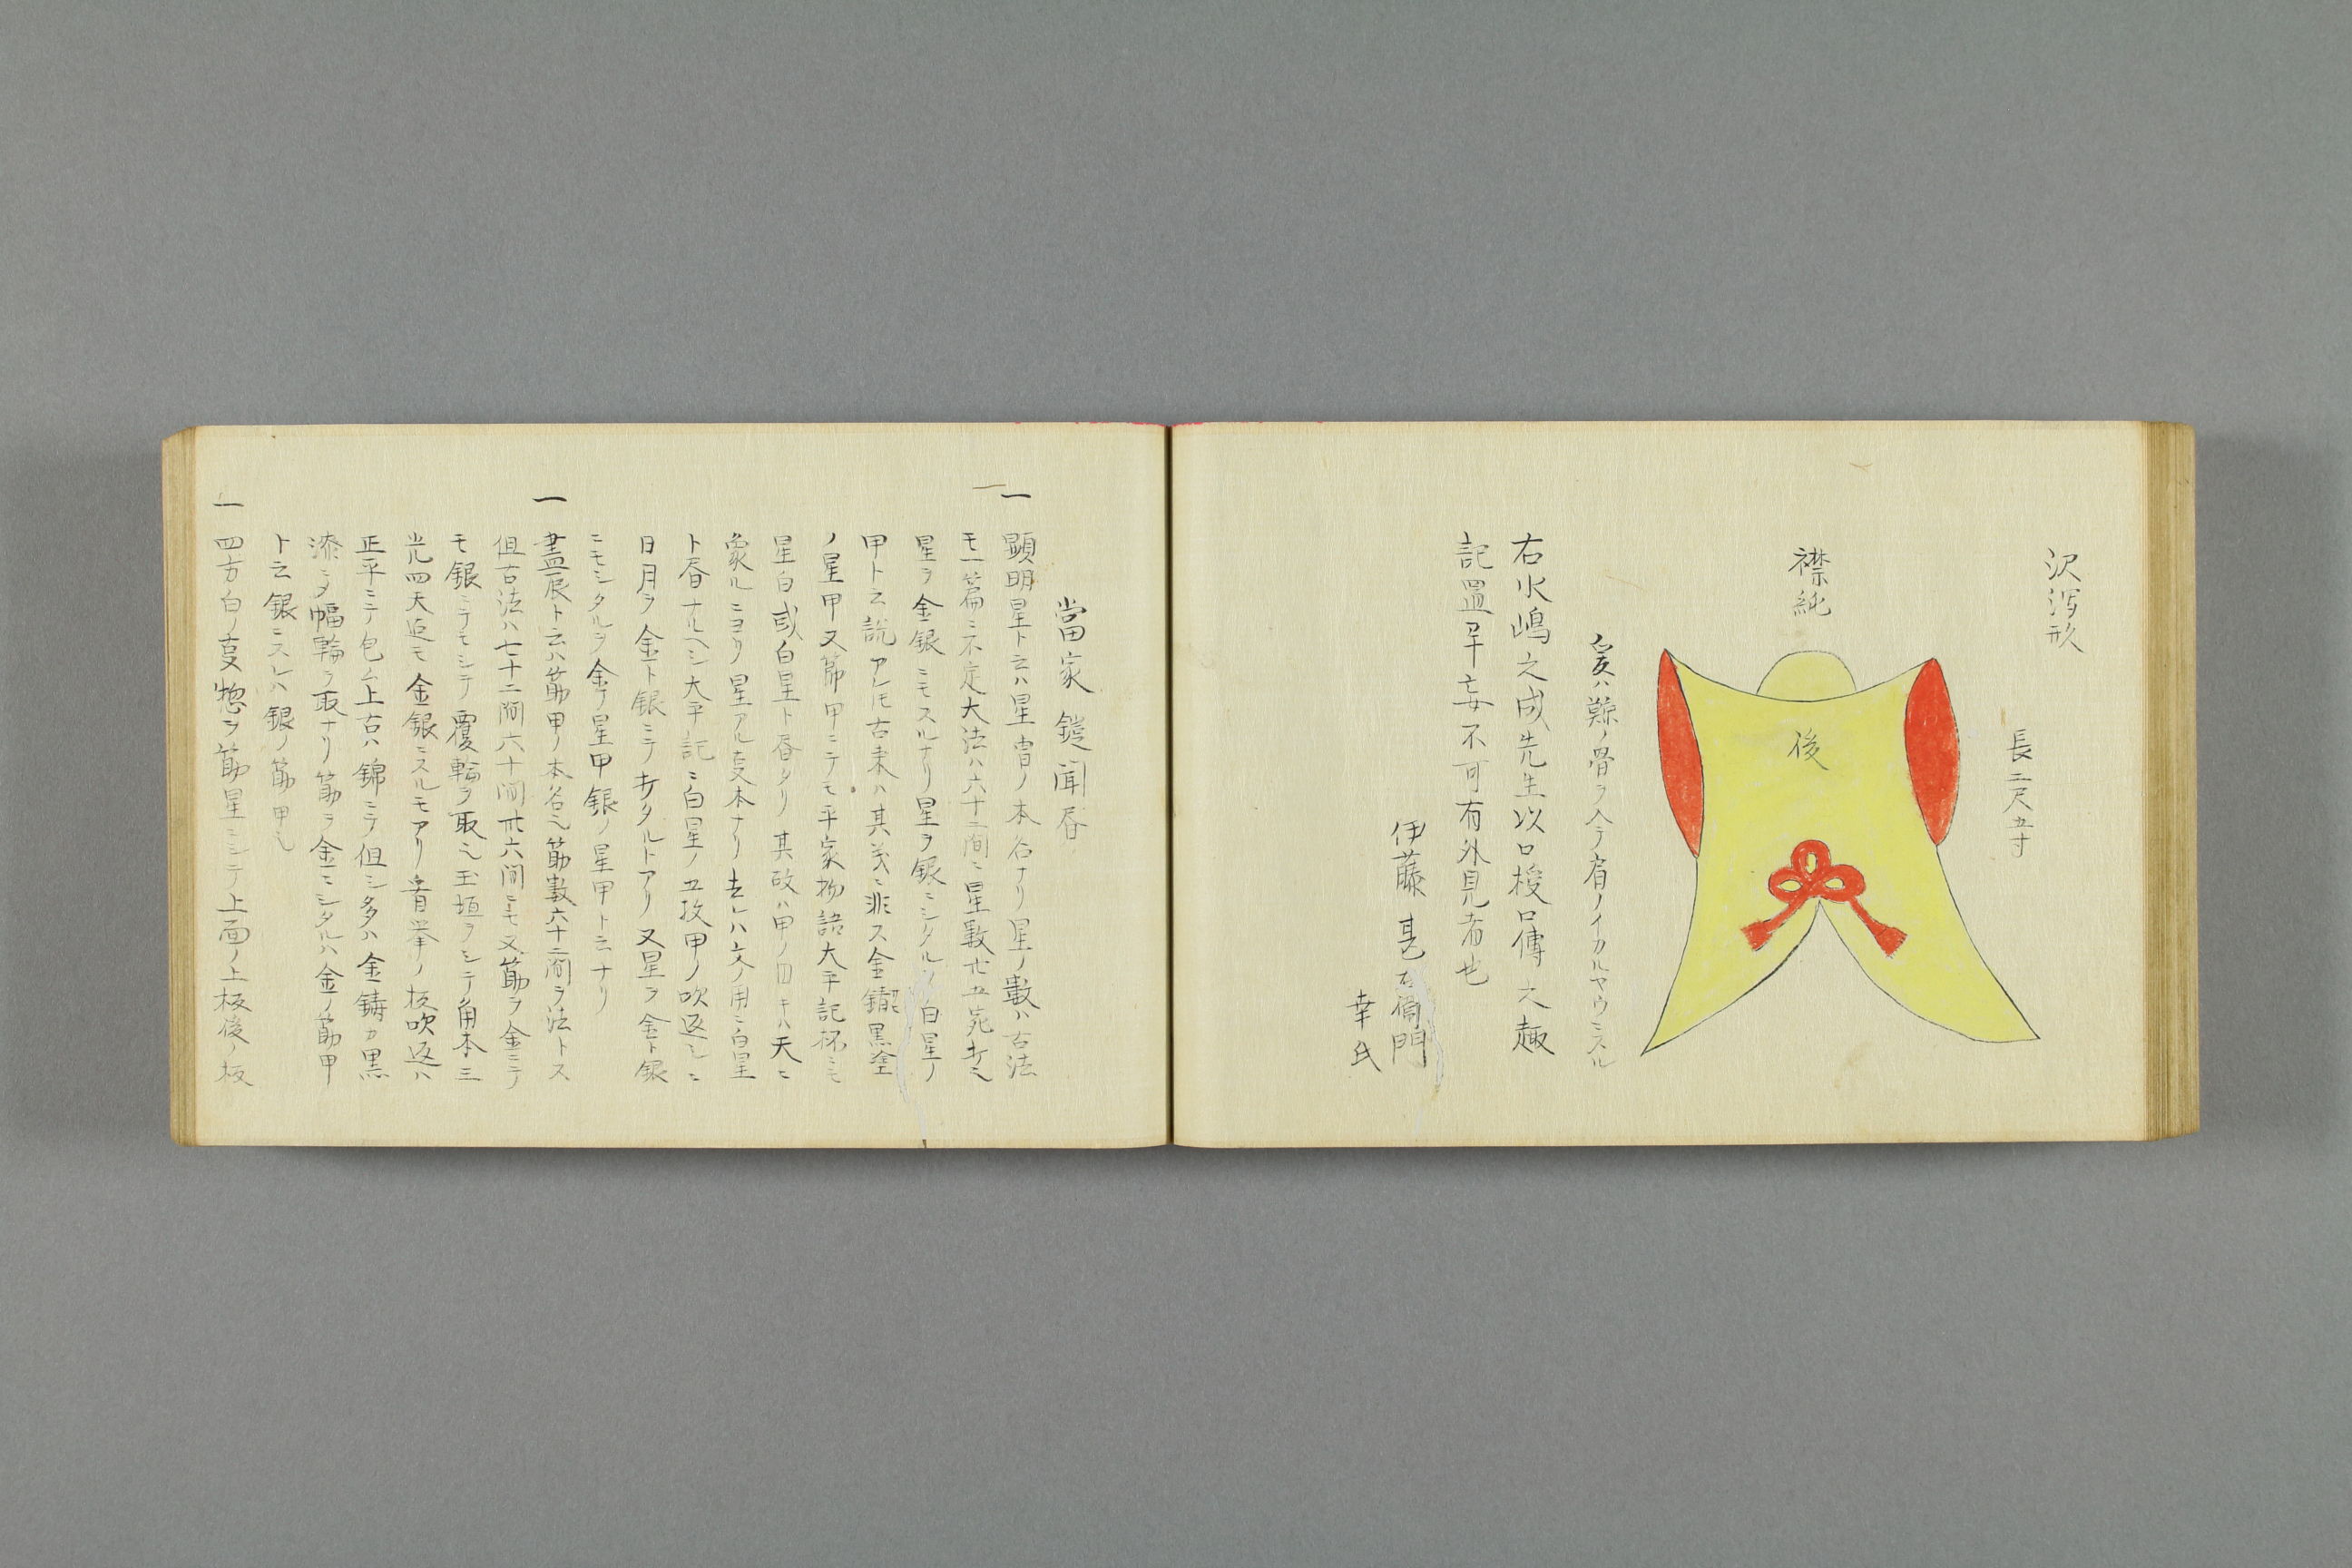 沢瀉形
長二尺五寸
襟純
後
爰ハ鯨ノ骨ヲ入テ肩ノイカルヤウニスル
右水嶋之成先生以口授口傳之趣
記置畢妄不可有外見者也
伊藤甚右衛門
幸氏
當家鎧聞書
一 顕明星ト云ハ星冑ノ本名ナリ星ノ數ハ古法
モ一篇ニ不定大法ハ六十二間ニ星數廿五宛打也
星ヲ金銀ニモスルナリ星ヲ銀ニシタルヲ白星ノ
甲ト云説アレ𪜈古来ハ其義ニ非ス金鑞黒塗
ノ星甲又筋甲ニテモ平家物語大平記抔ニモ
星白或白星ト書タリ其故ハ甲ノ四キハ天ニ
象ルニヨリ星アル支本ナリ去レハ文ノ用ニ白星
ト書ナルヘシ大平記ニ白星ノ五枚甲ノ吹返シニ
日月ヲ金ト銀ニテ打タルトアリ又星ヲ金ト銀
ニモシタルヲ金ノ星甲銀ノ星甲ト云ナリ
一 盡辰ト云ハ筋甲ノ本名也筋數六十二間ヲ法トス
但古法ハ七十二間六十間卅六間ニモ又筋ヲ金ニテ
モ銀ニテモシテ覆輪ヲ取也玉垣ヲシテ角本三
光四天返モ金銀ニスルモアリ眉挙ノ板吹返ハ
正平ニテ包ム上古ハ錦ニテ但シ多ハ金鋳カ黒
漆ニタ幅輪ヲ取ナリ筋ヲ金ニシタルハ金ノ筋甲
ト云銀ニスレハ銀ノ筋甲也
一 四方白ノ支惣ヲ筋星ニシテ上面ノ上板後ノ板